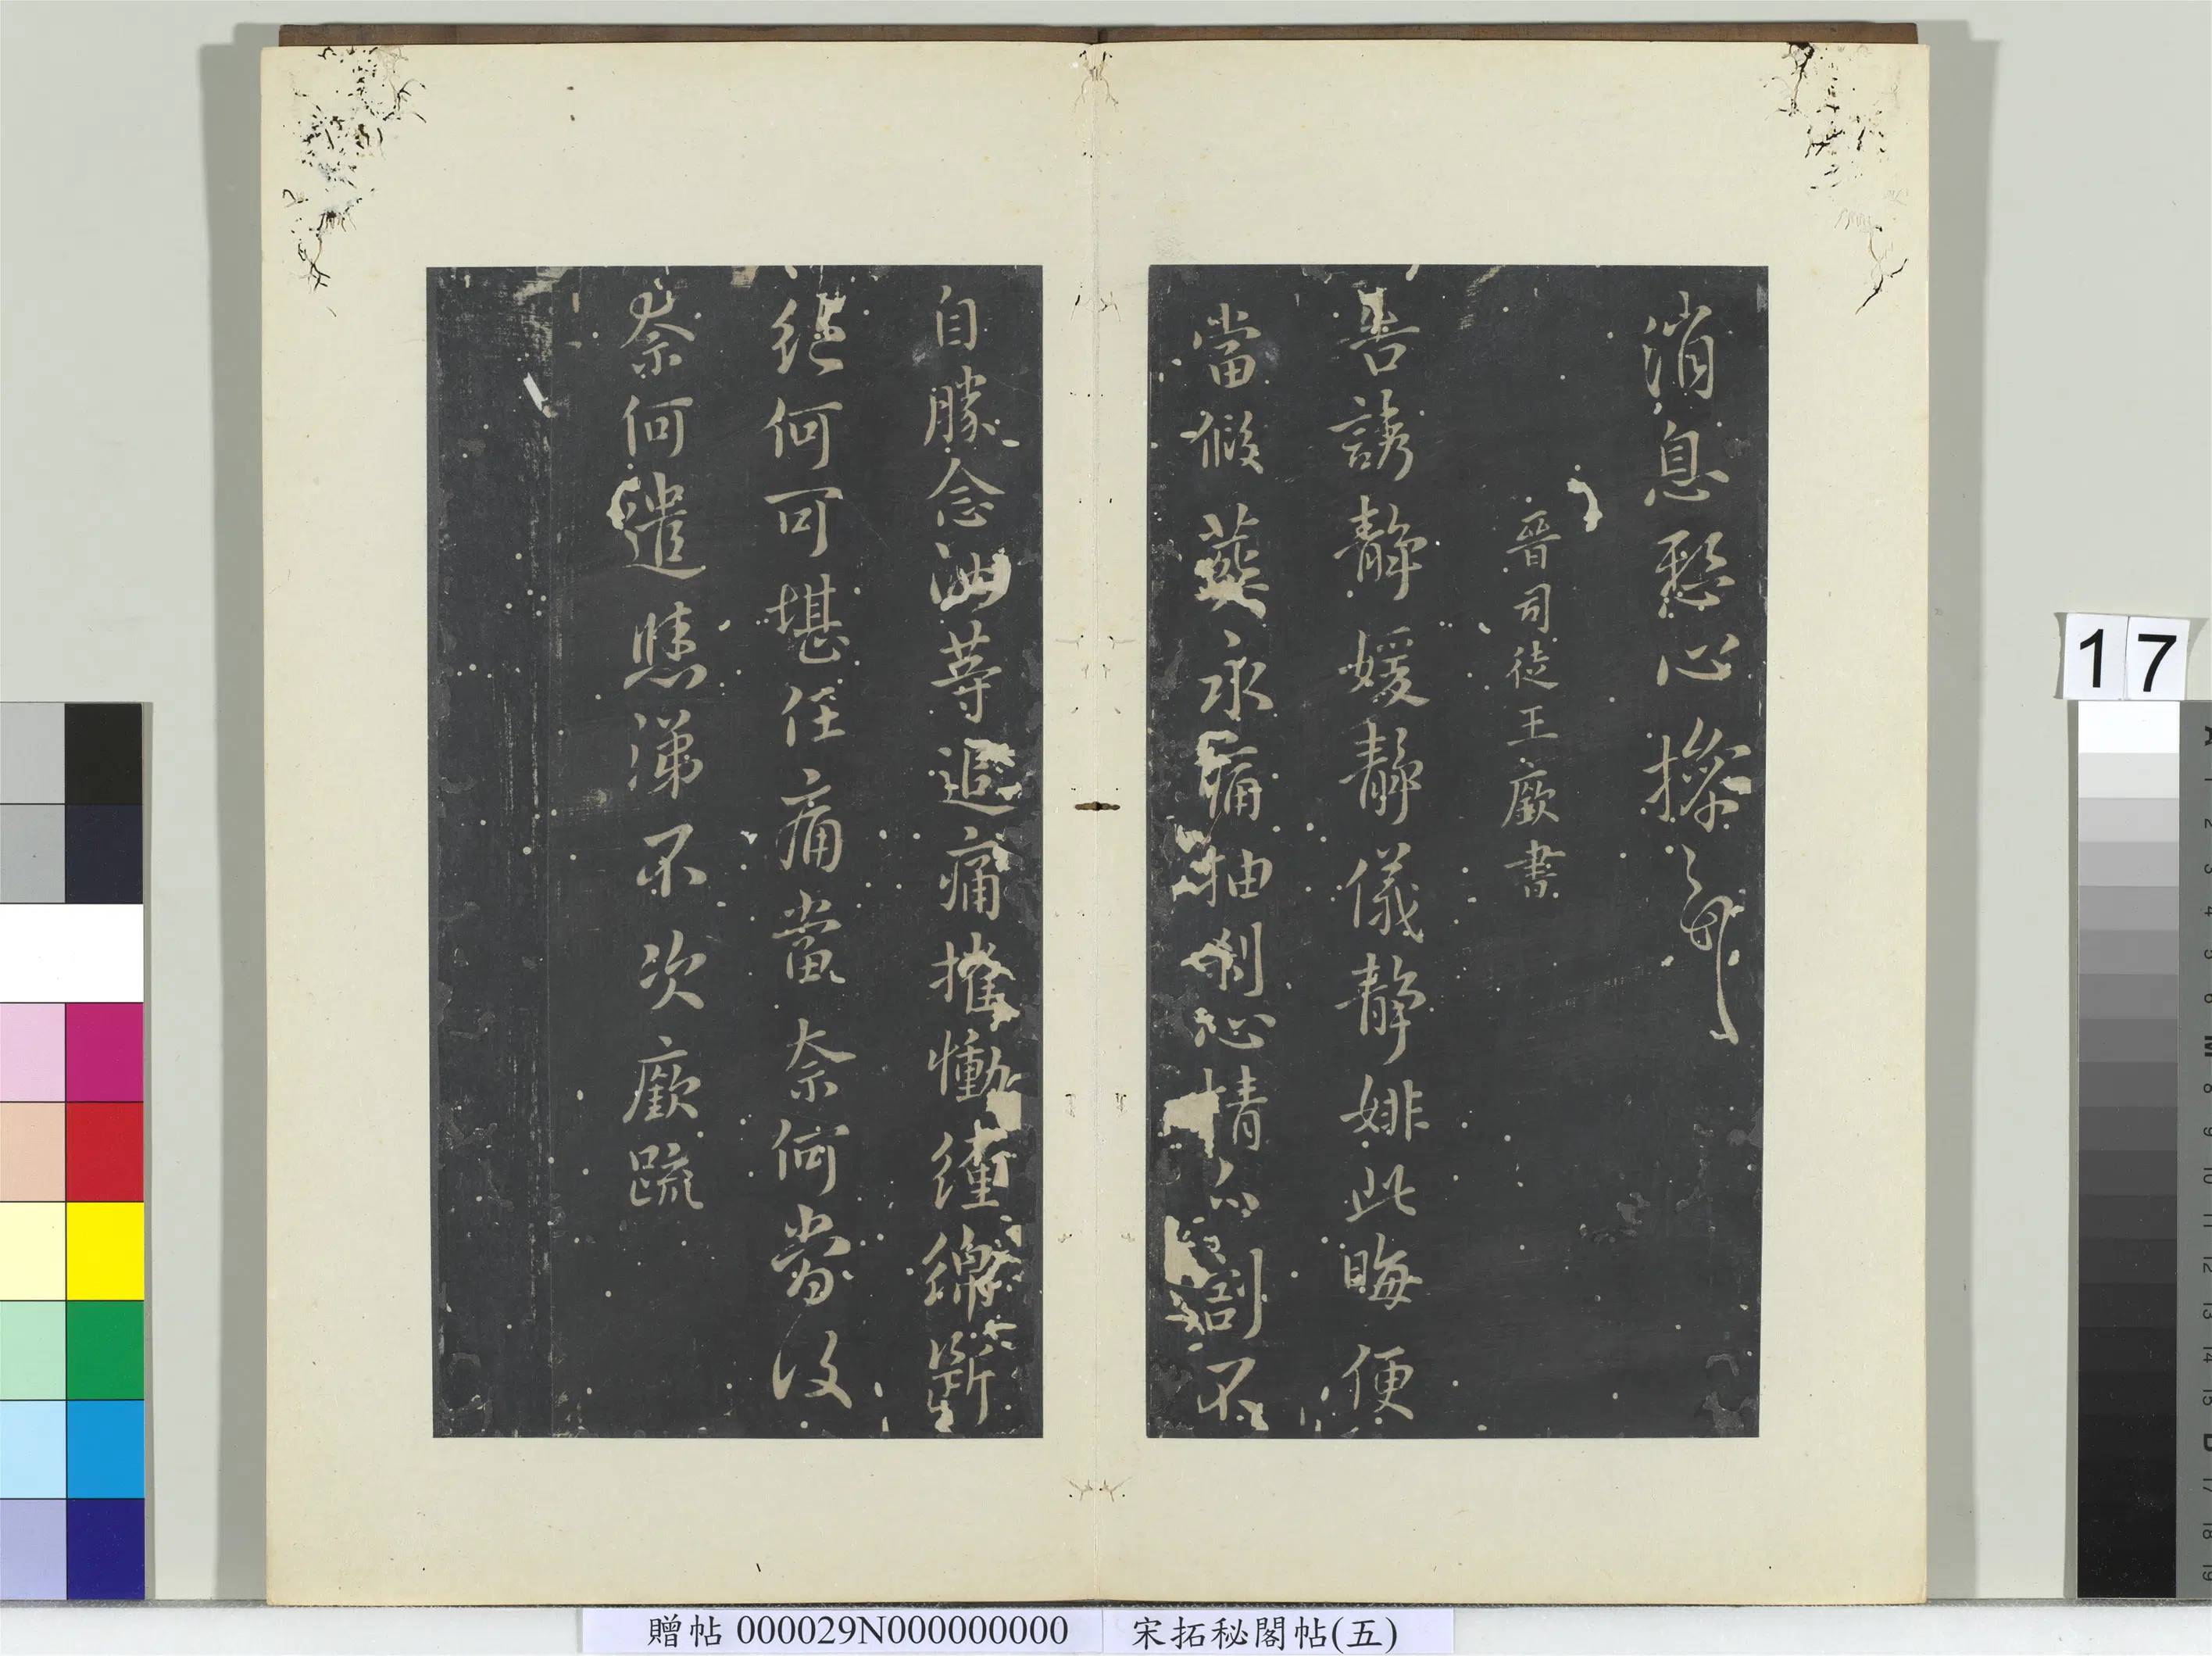 消息愁心操
晉司徒王廞書
靜媛靜儀靜姝此晦便
當假葬永痛抽剝心情分割不
自勝念汝等追痛摧慟纏綿斷
絕何可堪任痛當奈何當復
奈何遣悲涕不次廞疏
17
贈帖 000029N000000000 宋拓秘閣帖(五)